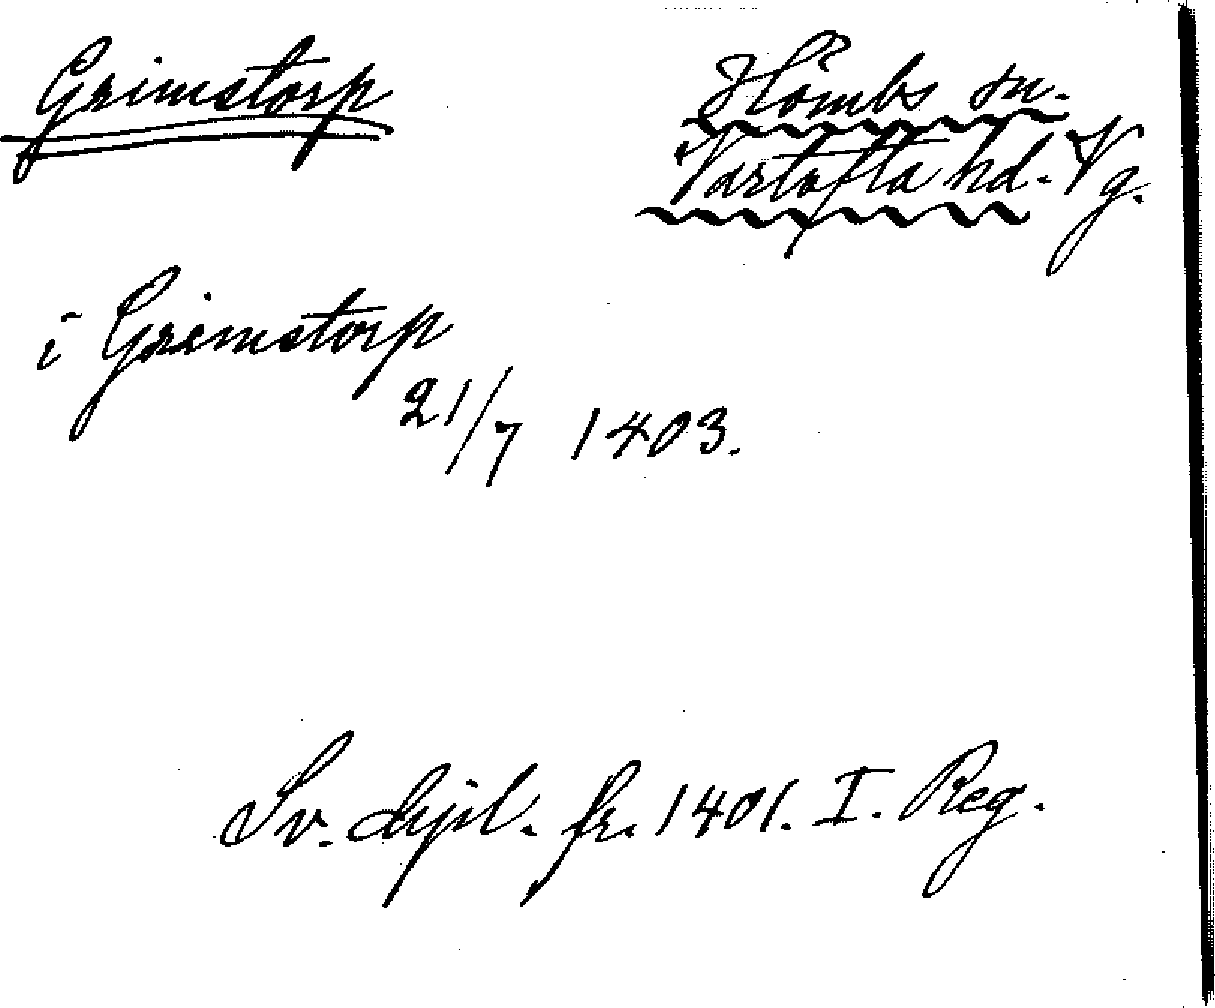 Grimstorp
Hömbs sn.
Vartofta hd. Vg.
i Grimstorp
21/7 1403.
Sv. dipl. fr. 1401. I. Reg.